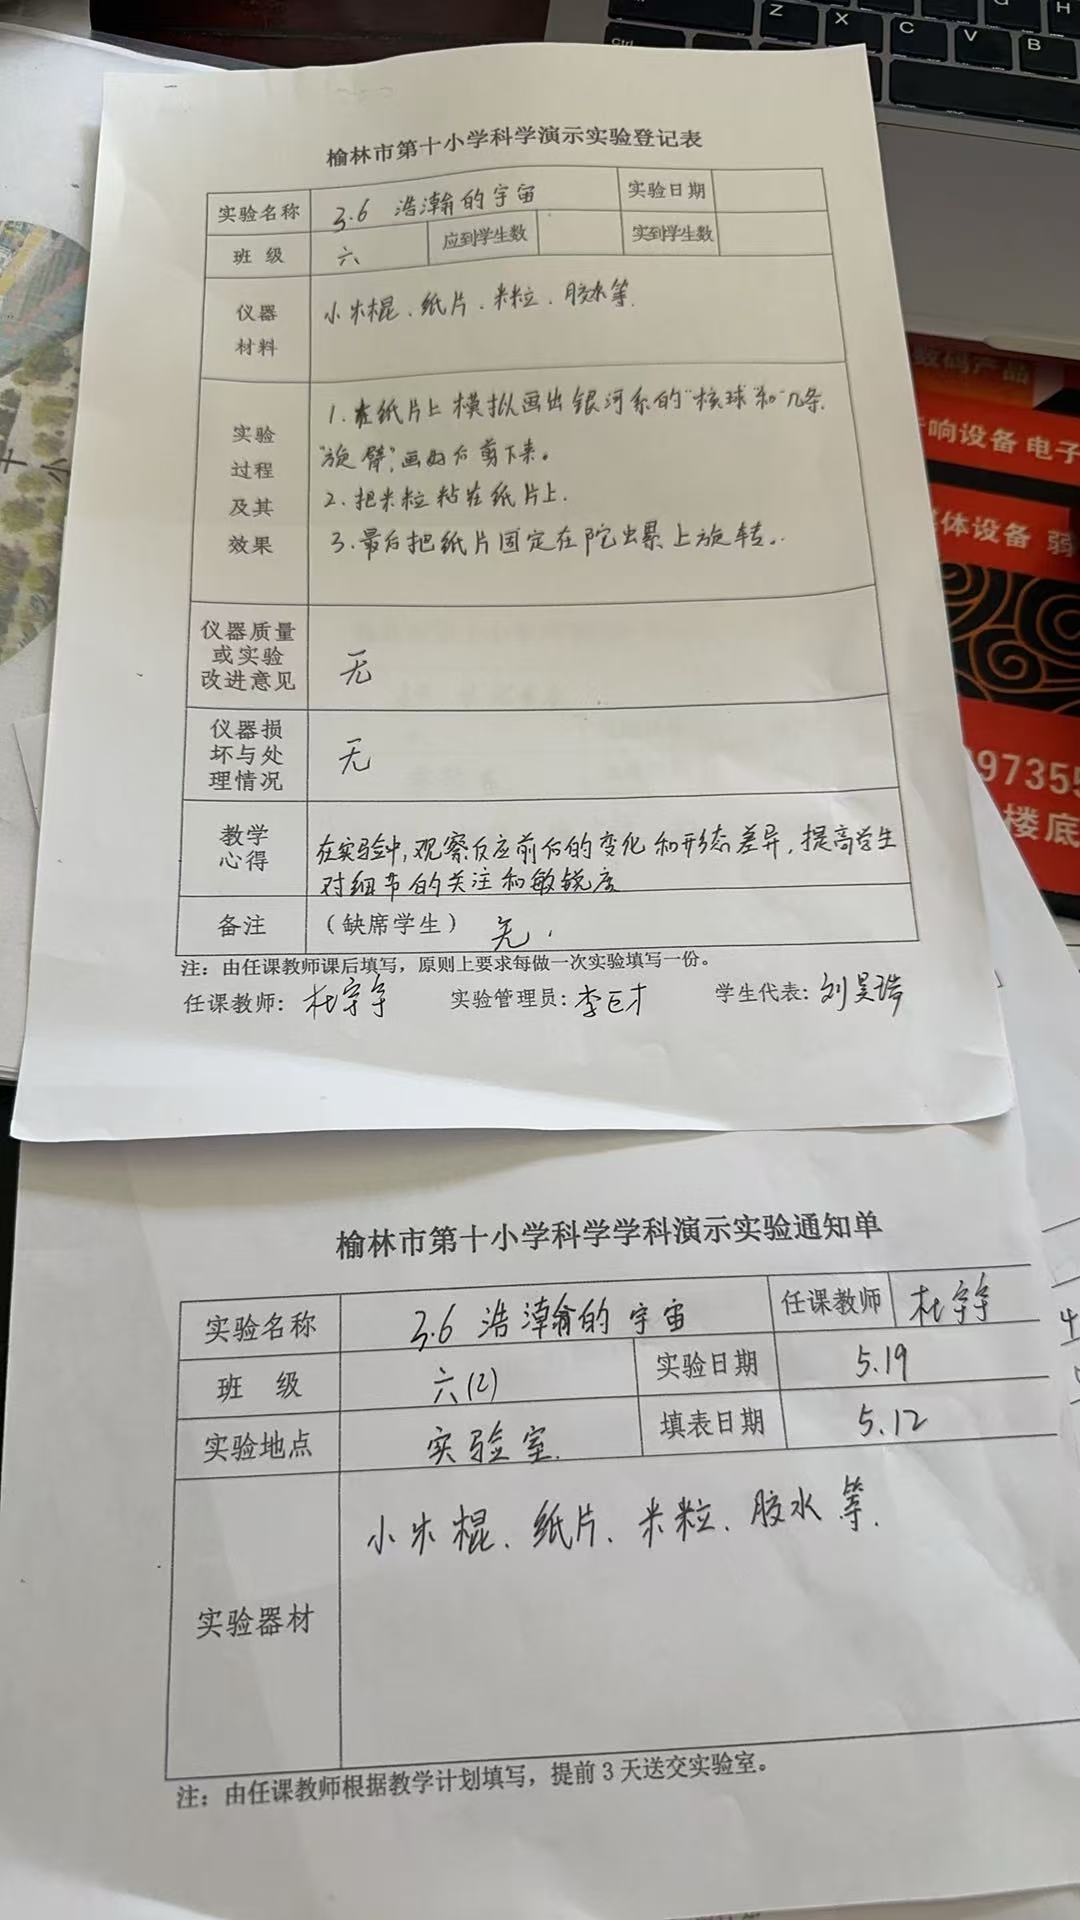 Z X C V B
Ctrl
榆林市第十小学科学演示实验登记表
实验名称 3.6 浩瀚的宇宙 实验日期
班 级 六 应到学生数 实到学生数
仪器材料 小木棍、纸片、米粒、胶水等.
实验过程及其效果 1.在纸片上模拟画出银河系的“核球”和“几条
“旋臂”,画好后剪下来。
2.把米粒粘在纸片上.
3.最后把纸片固定在陀虫累上旋转。
仪器质量或实验改进意见 无
仪器损坏与处理情况 无
教学心得 在实验中,观察反应前后的变化和形态差异,提高学生
对细节的关注和敏锐度
备注 (缺席学生) 无.
注:由任课教师课后填写,原则上要求每做一次实验填写一份。
任课教师:杜宇宇 实验管理员:李巨才 学生代表:刘昊
数码产品
响设备 电子
体设备 弱
97355
楼底
榆林市第十小学科学学科演示实验通知单
实验名称 3.6 浩瀚的宇宙 任课教师 杜宇宇
班 级 六(2) 实验日期 5.19
实验地点 实验室. 填表日期 5.12
实验器材 小木棍、纸片、米粒、胶水等.
注:由任课教师根据教学计划填写,提前3天送交实验室。